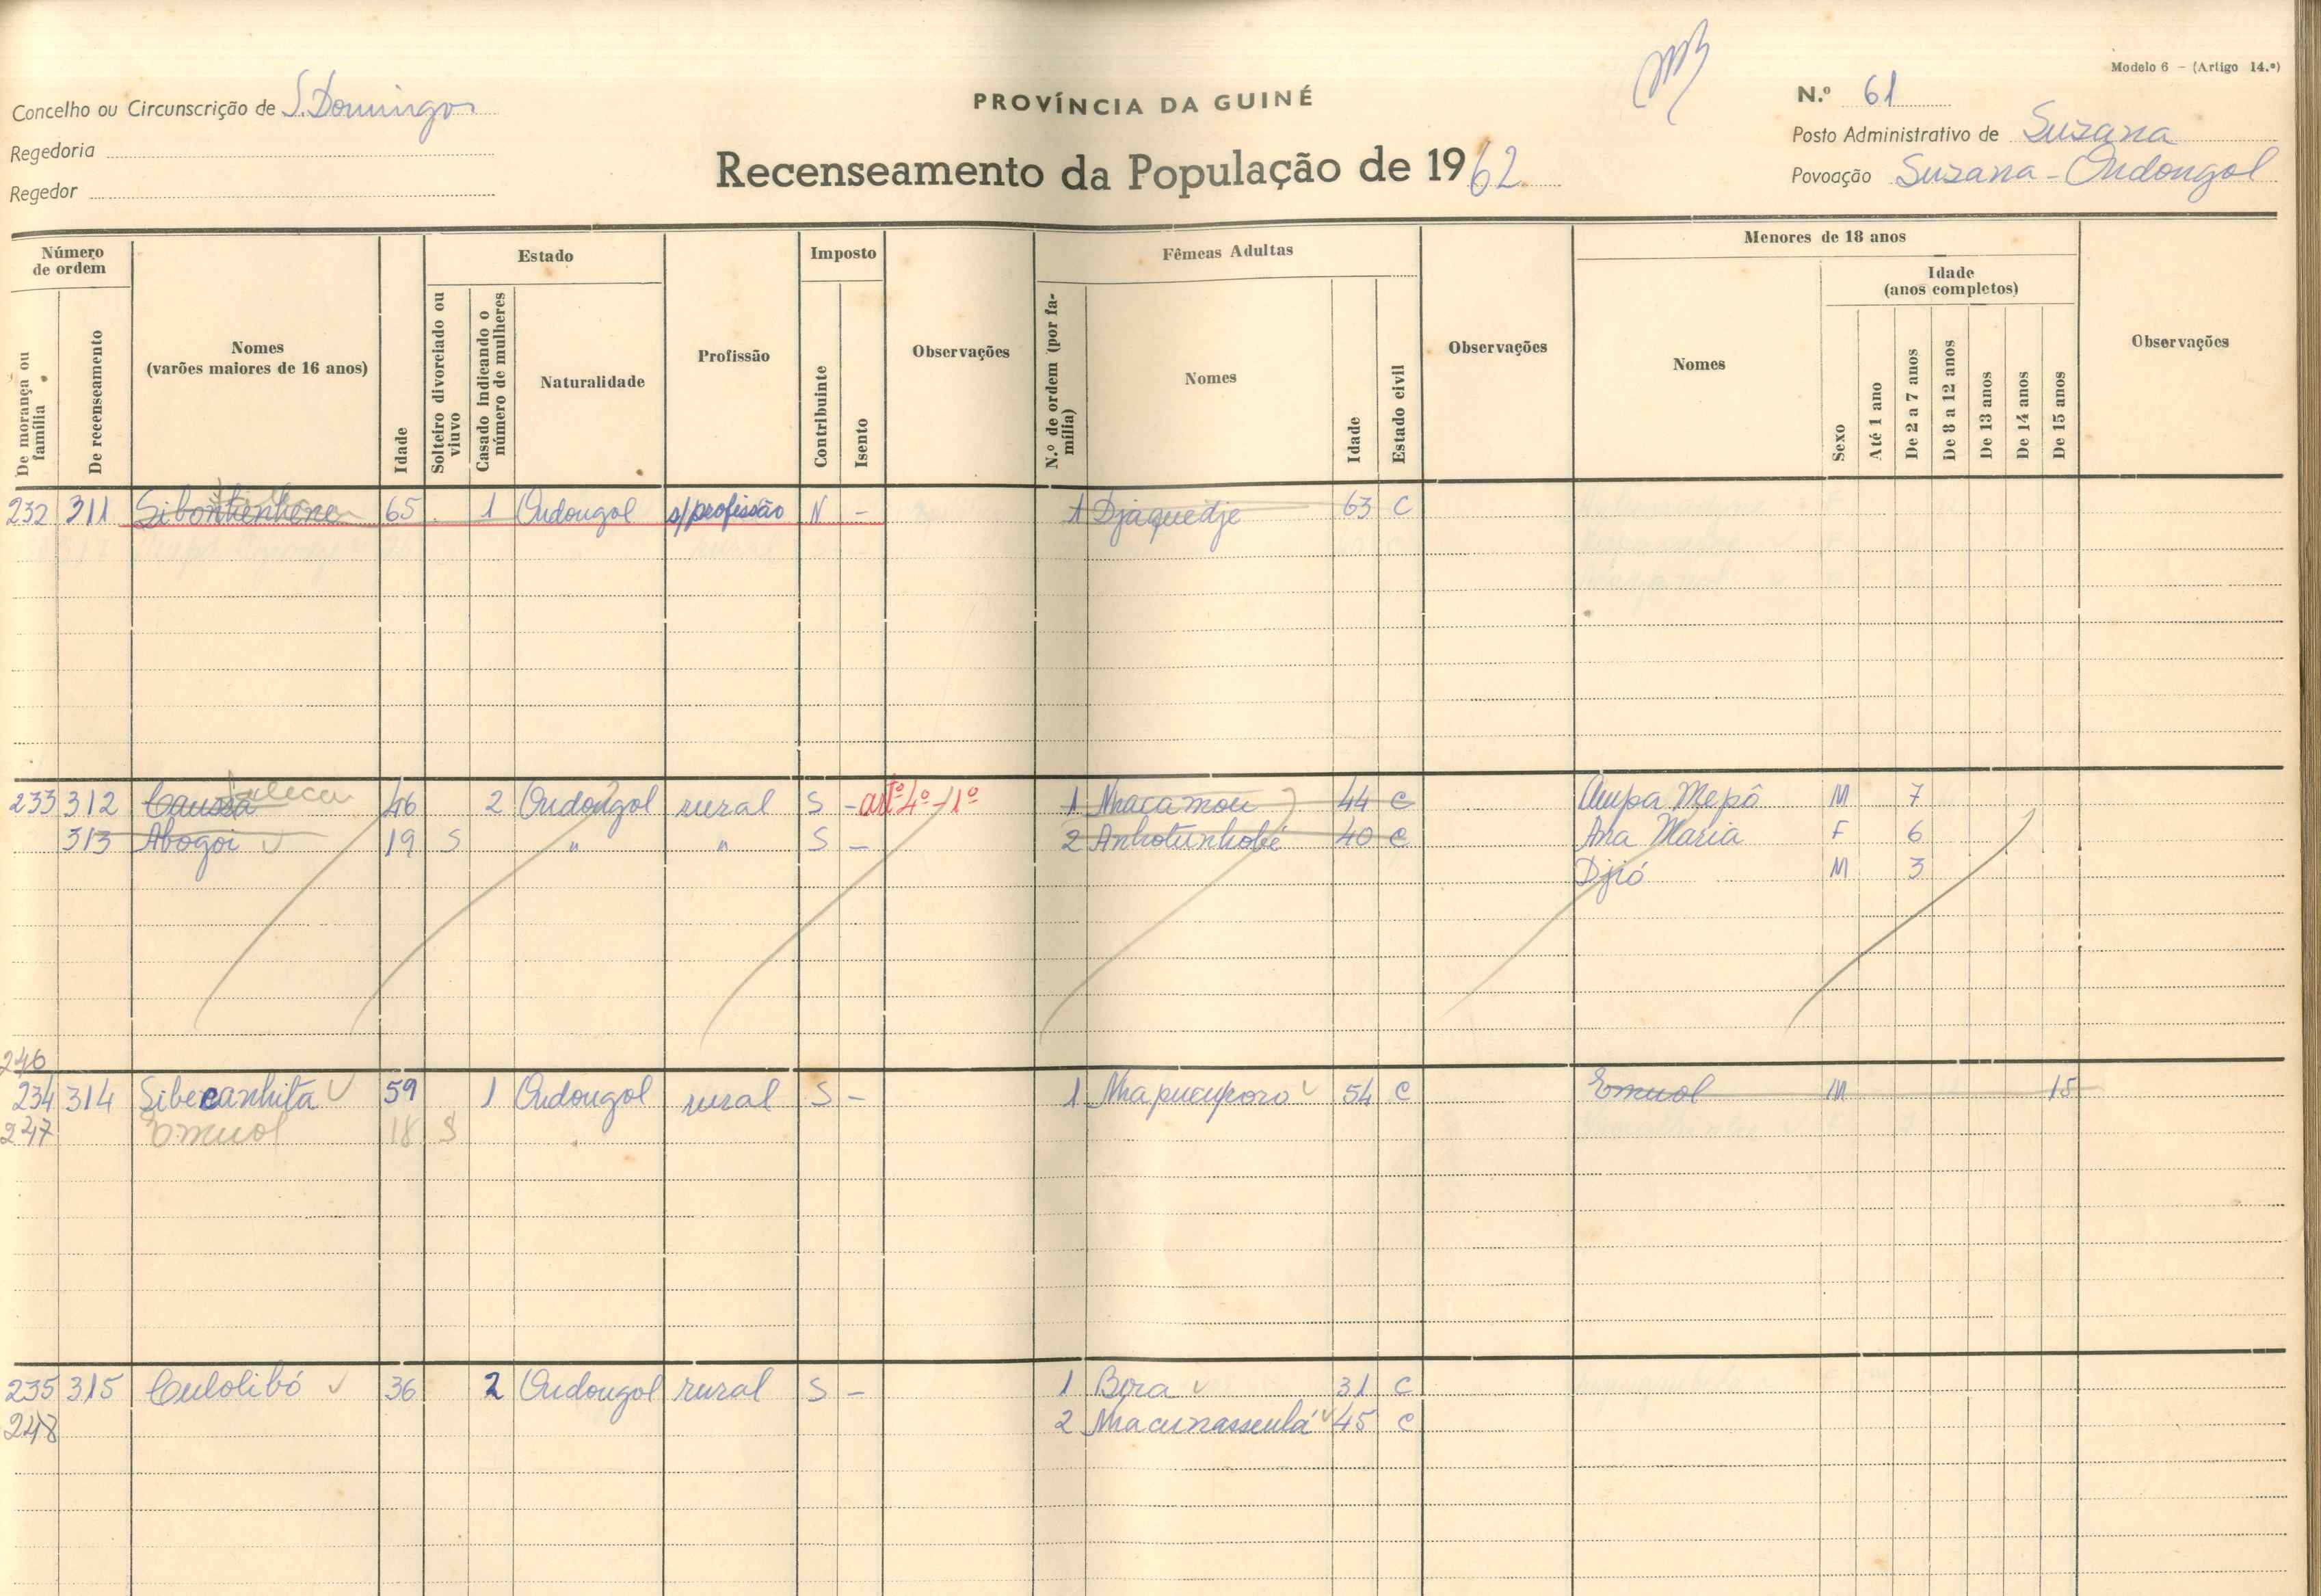 Modelo 6 - (Artigo 14.º)
Concelho ou Circunscrição de S. Domingos
PROVÍNCIA DA GUINÉ
N.º 61
Regedoria
Posto Administrativo de Suzana
Regedor
Recenseamento da População de 1962
Povoação Suzana - Ondongol
Número de ordem
Estado
Imposto
Fêmeas Adultas
Menores de 18 anos
Idade (anos completos)
De morança ou família
De recenseamento
Nomes (varões maiores de 16 anos)
Idade
Solteiro divorciado ou viuvo
Casado indicando o número de mulheres
Naturalidade
Profissão
Contribuinte
Isento
Observações
N.º de ordem (por família)
Nomes
Idade
Estado civil
Observações
Nomes
Sexo
Até 1 ano
De 2 a 7 anos
De 8 a 12 anos
De 13 anos
De 14 anos
De 15 anos
Observações
232 311 65 1 Ondongol s/profissão N - 1 Djaquedje 63 C
233 312 46 2 Ondongol rural S - artº 4º - 1º 1 Nhacamou 44 C Ampa Mepô M 7
313 Abogoi 19 S " " S - 2 Anhotunhobé 40 C Ana Maria F 6
Djió M 3
246
234 314 Sibecanhita 59 1 Ondongol rural S - 1 Nhapueuporo 54 C Emuol M 15
247 Emuol 18 S
235 315 Culolibó 36 2 Ondongol rural S - 1 Bora 31 C
248 2 Nhacunassculá 45 C